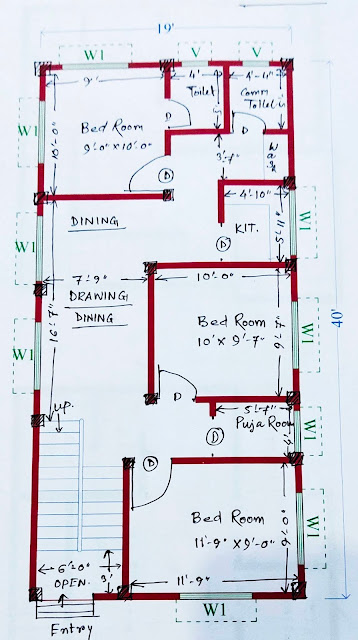 19'
W1
V
V
9'
4'
4'-4"
Toilet
Comm
Toilet
W1
10'-0"
Bed Room
9'-0" x 10'-0"
D
D
3'-7"
D
4'-10"
DINING
KIT.
5'-11"
W1
W1
D
7'-9"
10'-0"
DRAWING
DINING
16'-7"
Bed Room
10' x 9'-7"
9'-7"
W1
40'
W1
D
up.
5'-7"
Puja Room
4'
D
D
W1
Bed Room
11'-9" x 9'-0"
9'-0"
6'-0"
OPEN.
3'
11'-9"
W1
Entry